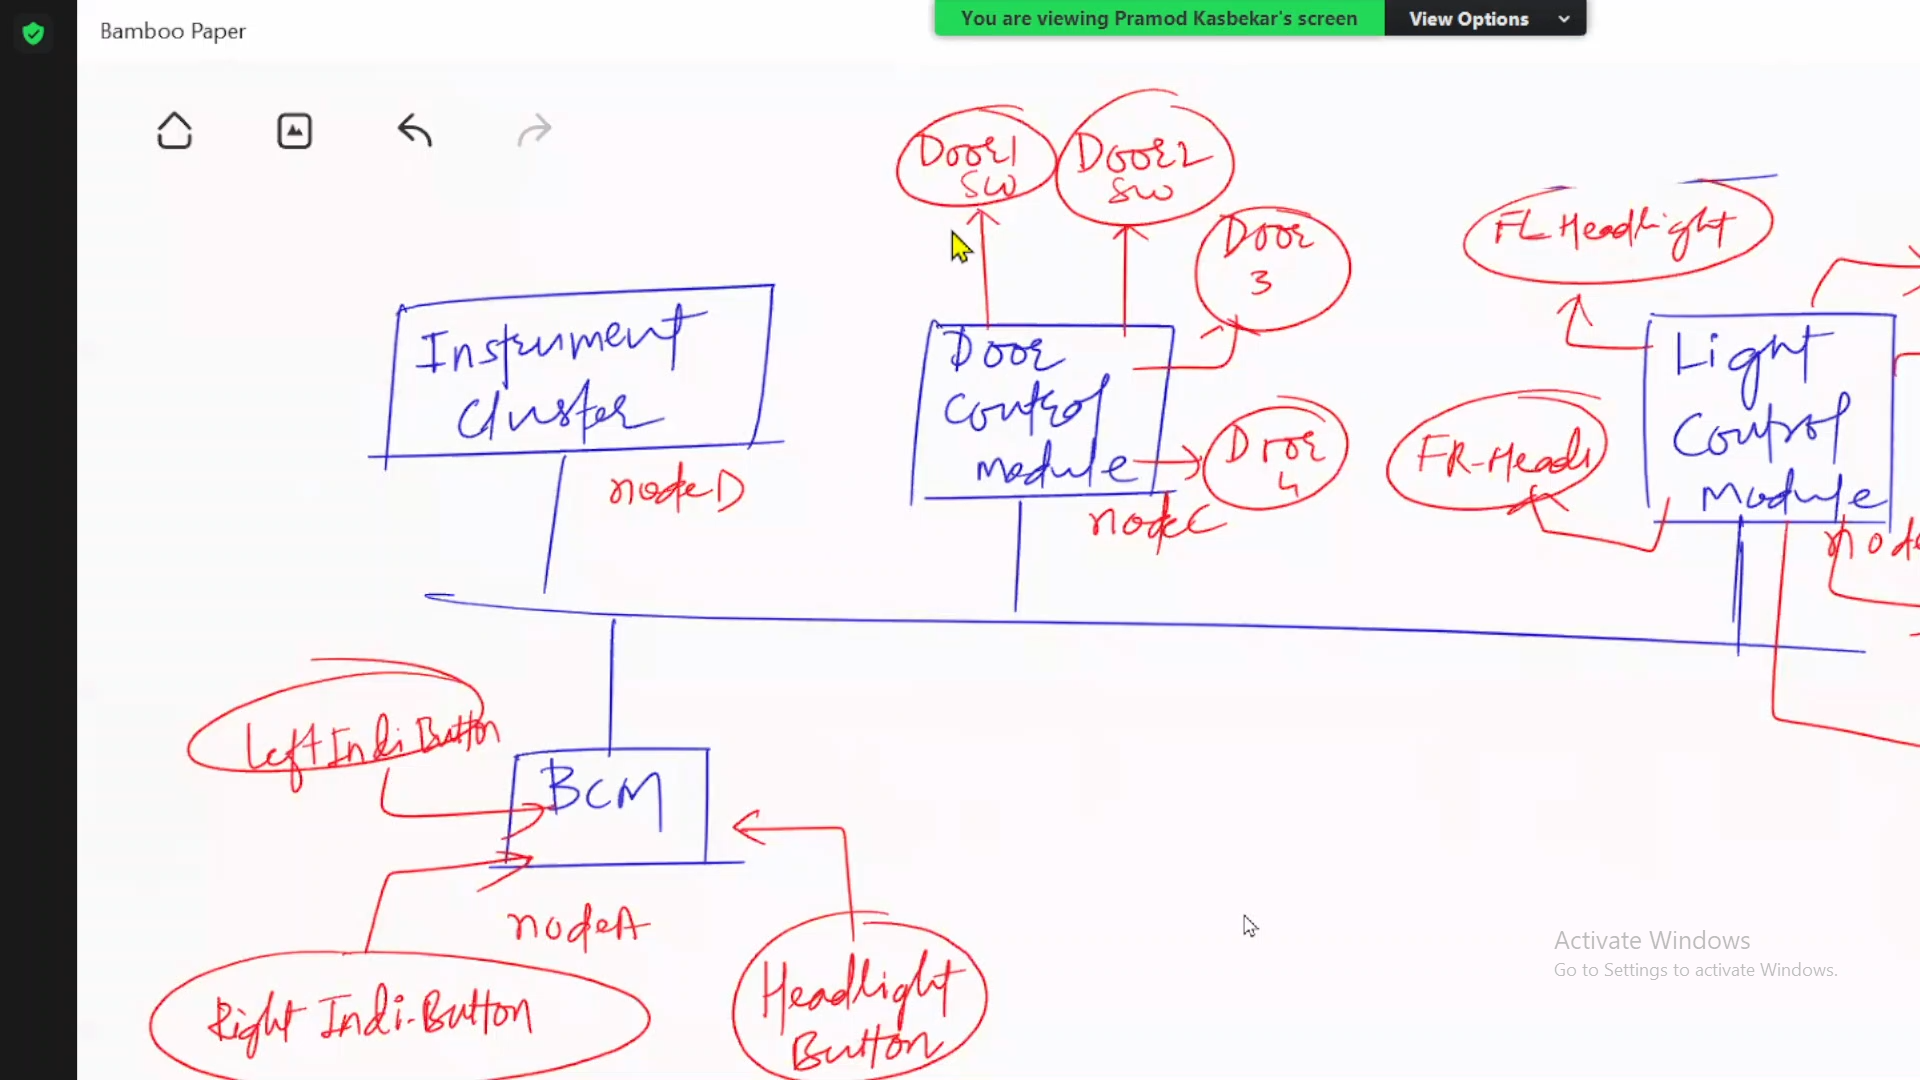 Bamboo Paper
You are viewing Pramod Kasbekar's screen
View Options
Door1
SW
Door2
SW
Door
3
FL Headlight
Instrument
Cluster
Door
Control
Module
Door
4
FR-Headli
Light
Control
Module
nodeD
nodeC
node
Left Indi Button
BCM
nodeA
Right Indi-Button
Headlight
Button
Activate Windows
Go to Settings to activate Windows.